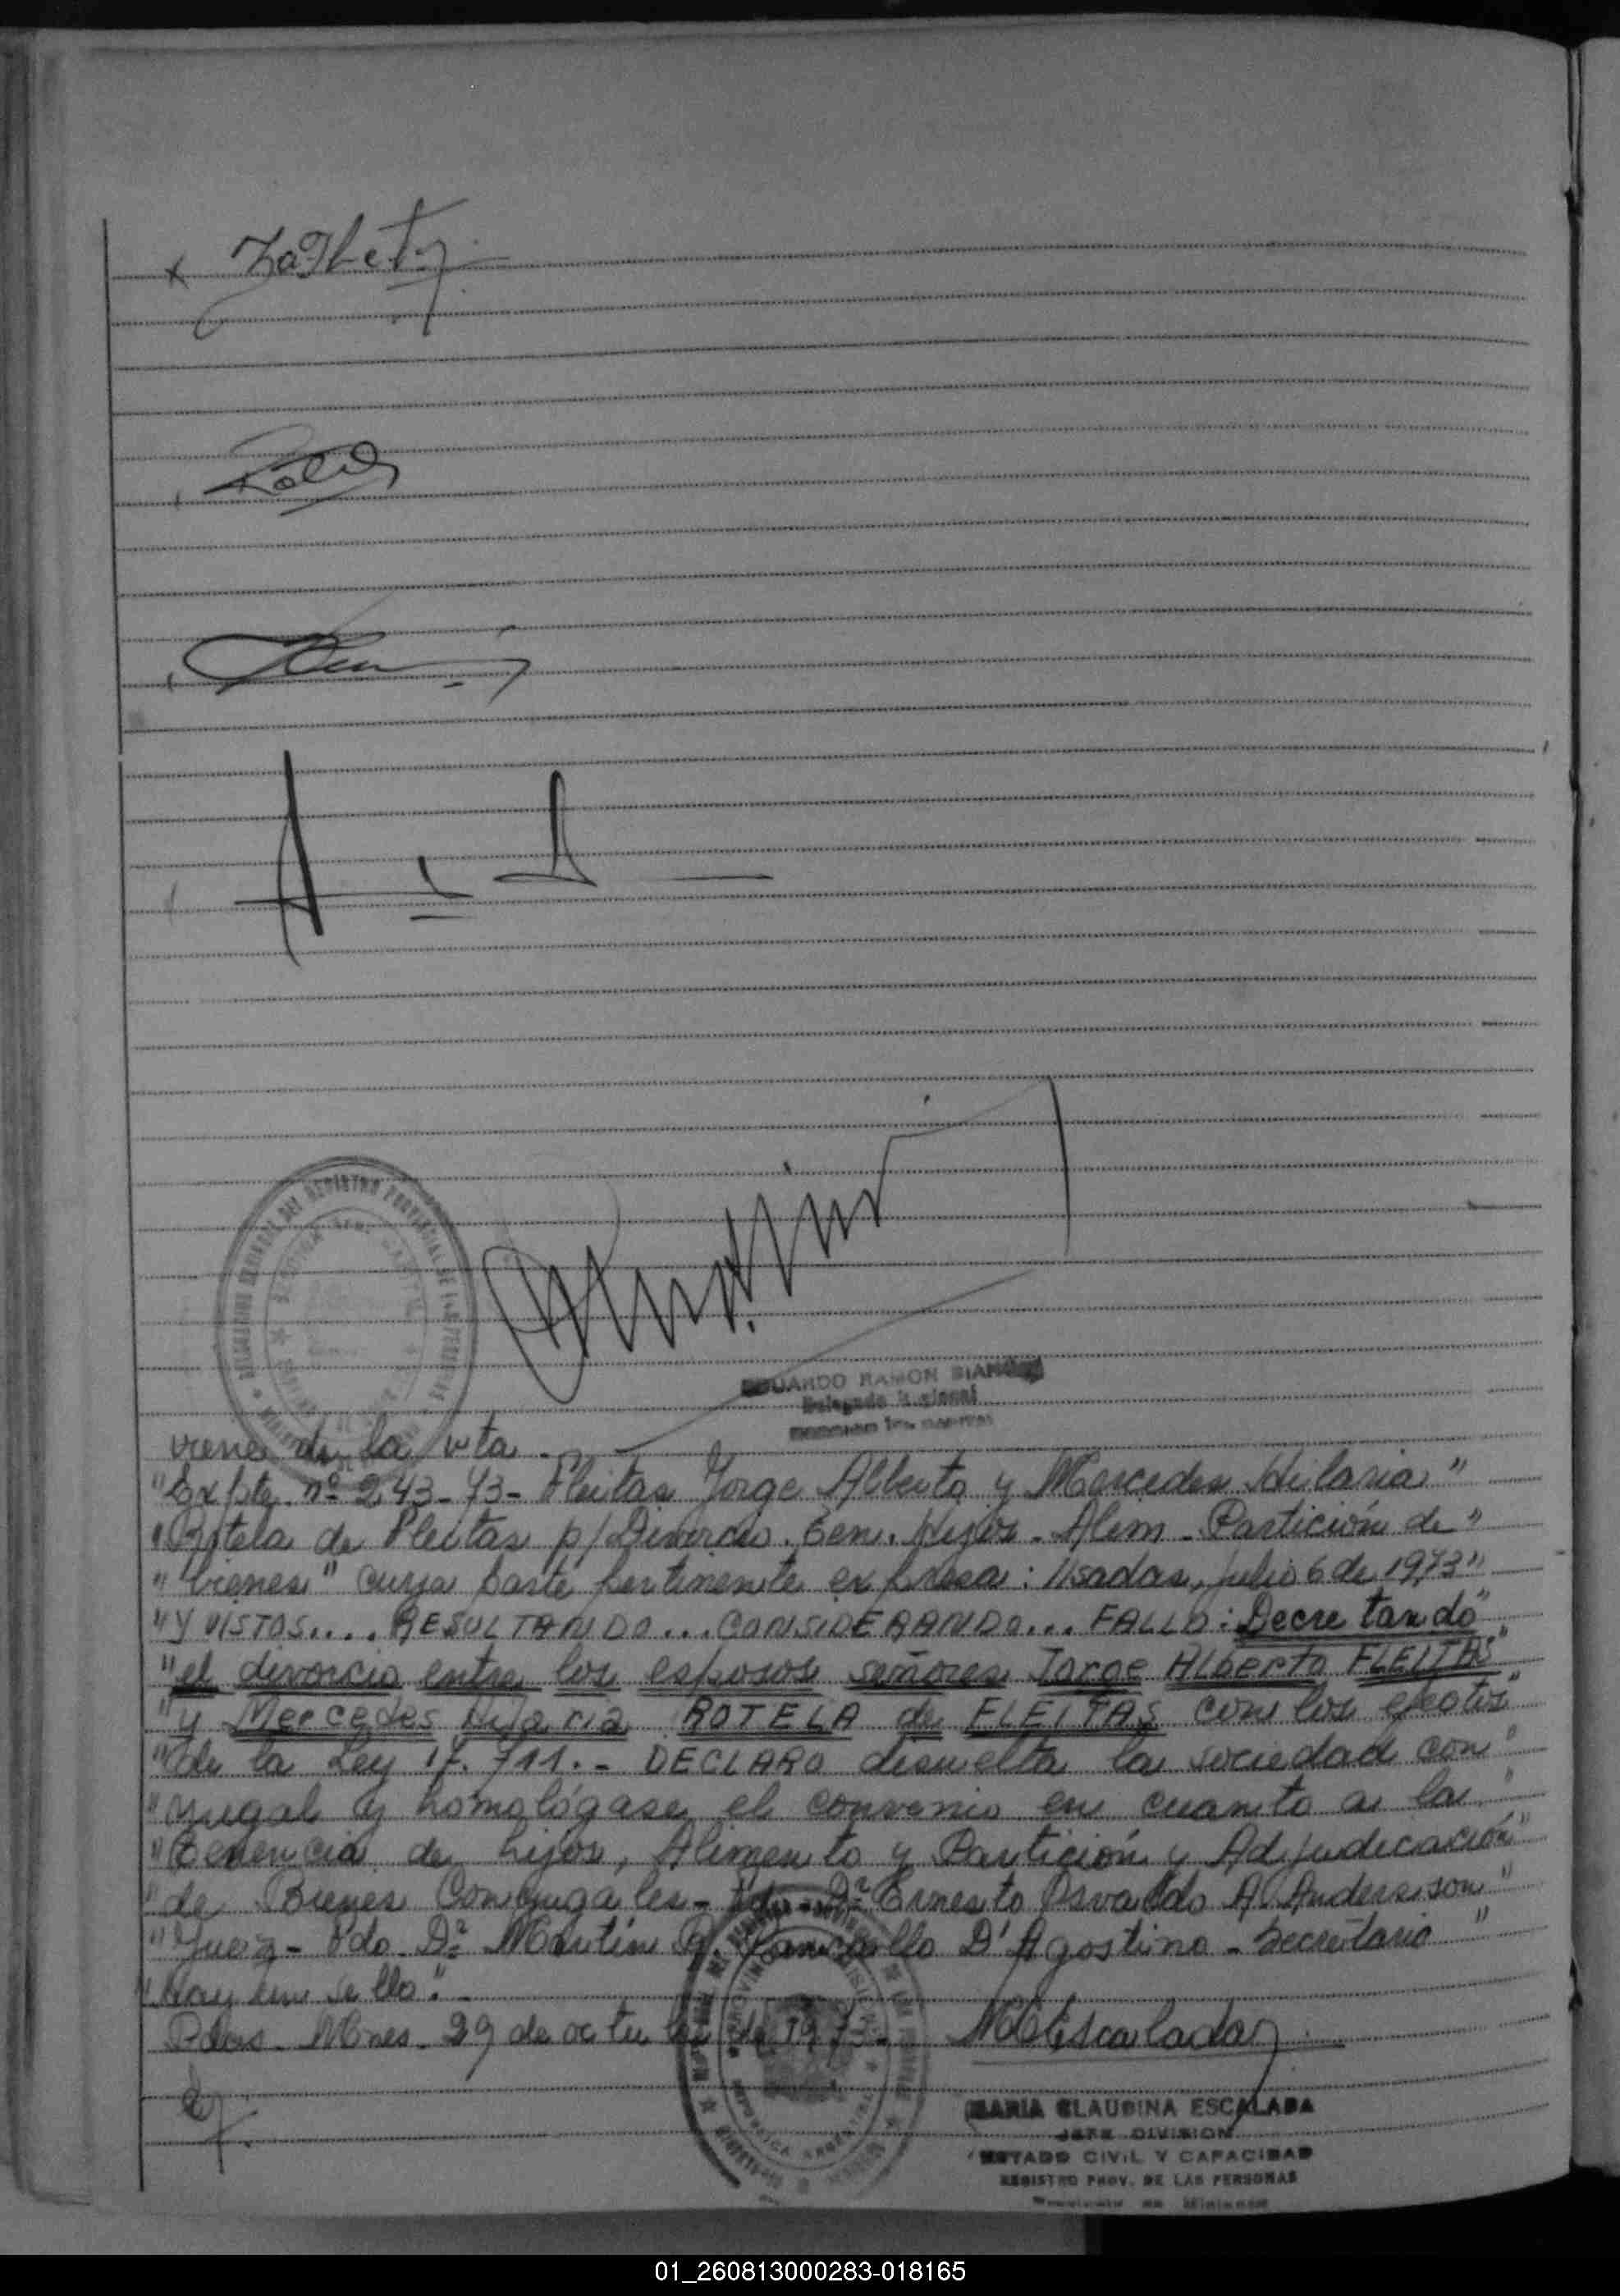 viene de la vta.
"Expte. nº 243-73- Fleitas Jorge Alberto y Mercedes Hilaria"
"Rotela de Fleitas p/Divorcio. Ten. Hijos - Alim - Partición de"
"bienes" cuya parte pertinente expresa: Posadas, julio 6 de 1973"
"Y VISTOS.... RESULTANDO... CONSIDERANDO... FALLO: Decretando"
"el divorcio entre los esposos señores Jorge Alberto FLEITAS"
"y Mercedes Hilaria ROTELA de FLEITAS con los efectos"
"de la Ley 17.711.- DECLARO disuelta la sociedad con"
"yugal y homológase el convenio en cuanto a la"
"tenencia de hijos, Alimento y Partición y Adjudicación"
"de Bienes Conyugales- Fdo. Dr. Ernesto Osvaldo A. Andersson"
"Juez- Fdo. Dr. Martín D'Agostino - Secretario"
"Hay un sello".
Pdas. Mnes. 29 de octubre de 1973.- Escalada
EDUARDO RAMON
MARIA CLAUDINA ESCALADA
JEFE DIVISION
ESTADO CIVIL Y CAPACIDAD
REGISTRO PROV. DE LAS PERSONAS
01_260813000283-018165